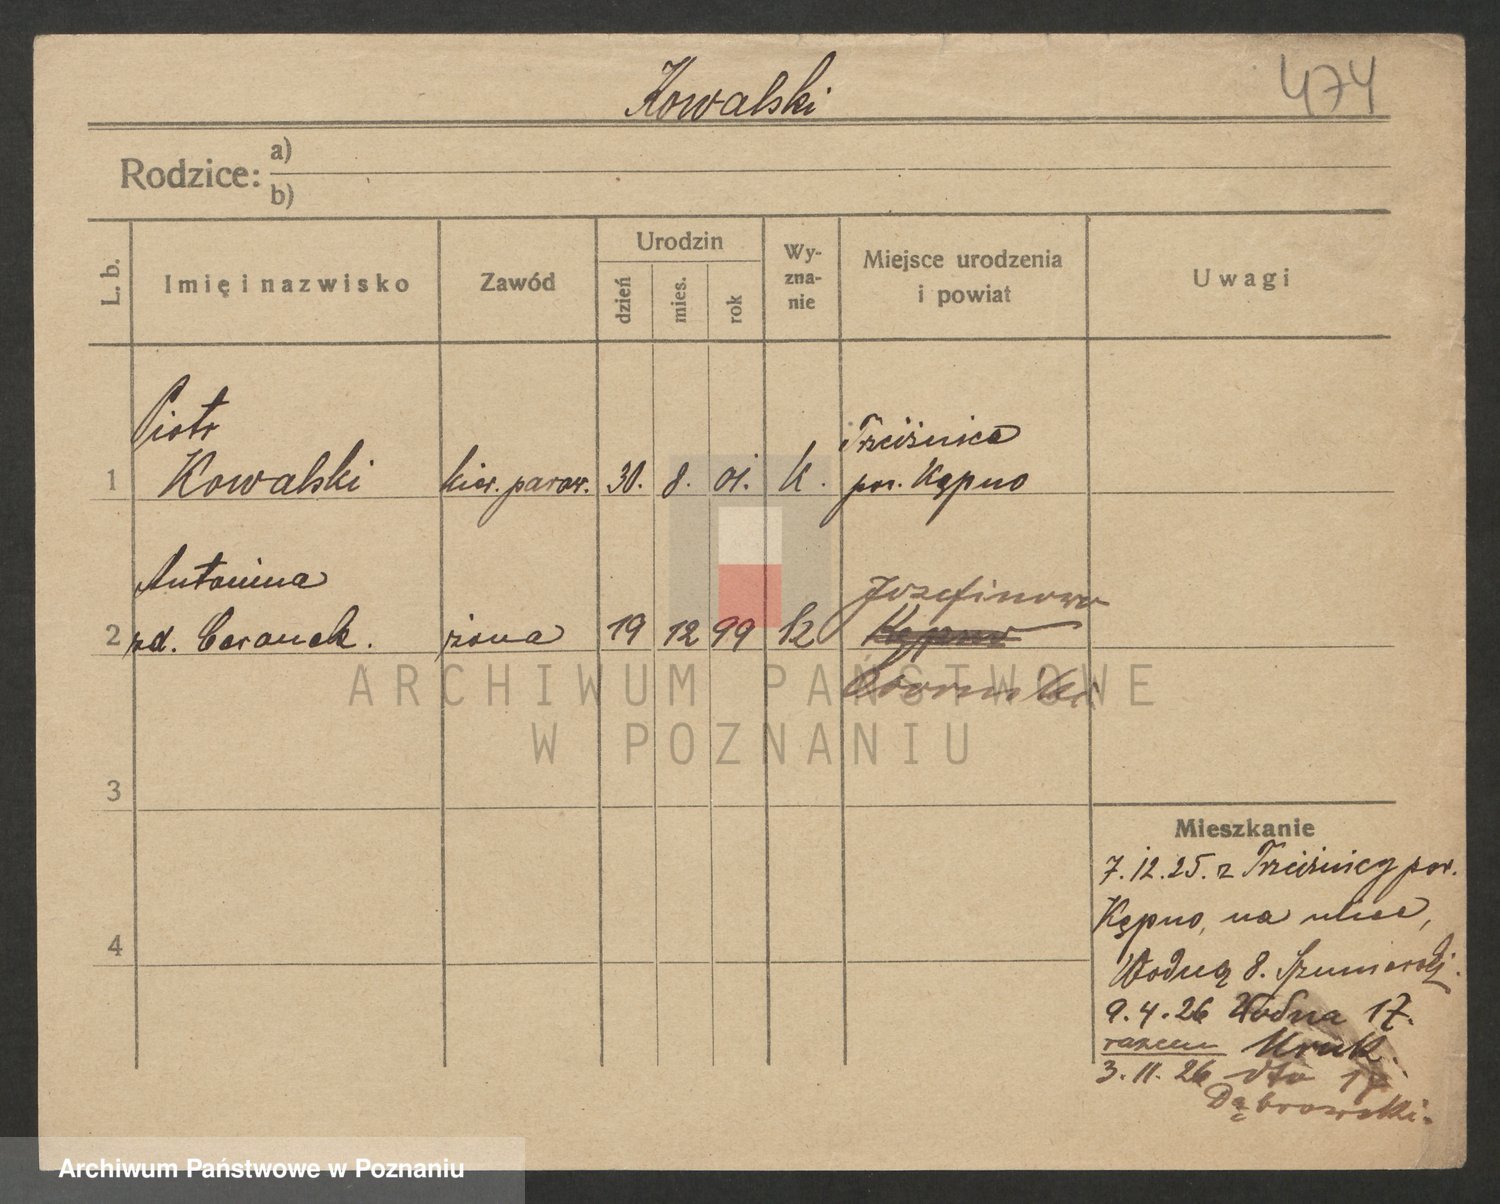 474
Kowalski
Rodzice: a)
b)
L. b.
Imię i nazwisko
Zawód
Urodzin
dzień
mies.
rok
Wy-
zna-
nie
Miejsce urodzenia
i powiat
Uwagi
Piotr
Trzcinica
1 Kowalski kier. parow. 30. 8. 01. K. pow. Kępno
Antonina
Józefinowo
2 zd. żona 19 12 99 k Kępno
3
4
Mieszkanie
7.12.25. z Trzcinicy pow.
Kępno, na ulicę,
Wodną 8.
9.4.26 Wodna 17.
razem Kruk.
3.11.26 dto 17
Dąbrowski.
ARCHIWUM PAŃSTWOWE
W POZNANIU
Archiwum Państwowe w Poznaniu